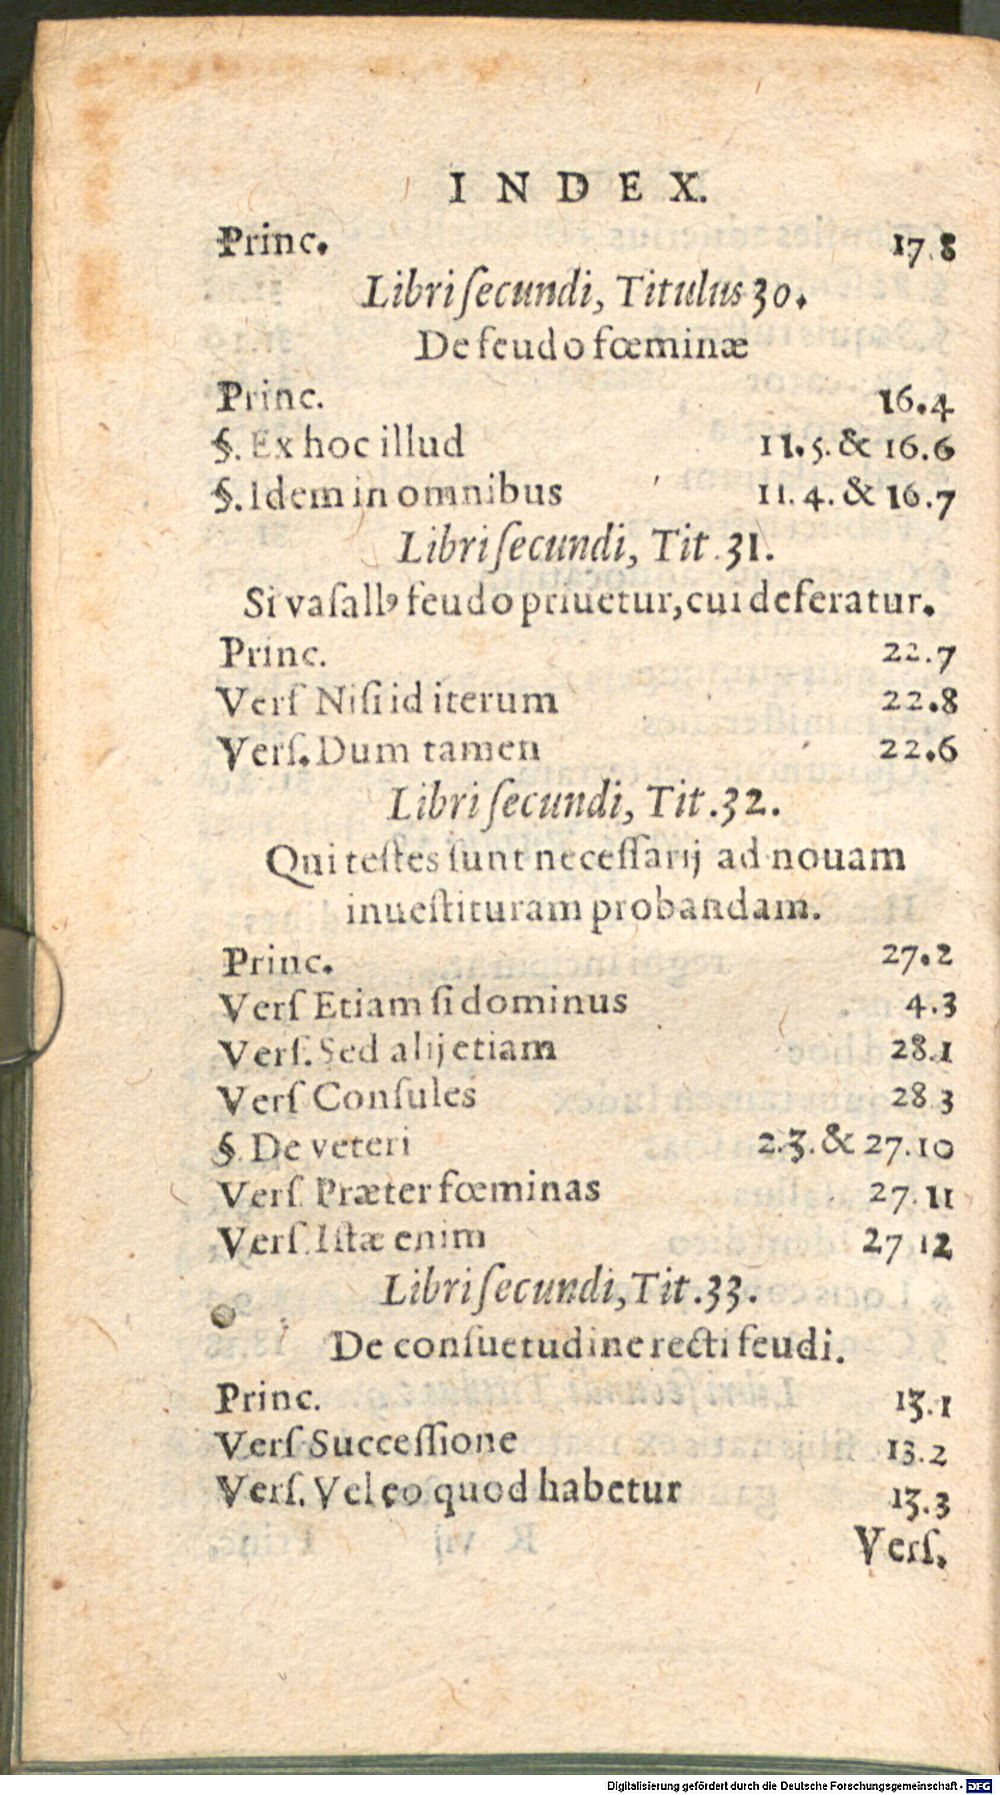 INDEX.
Princ. 17.8
Libri ſecundi, Titulus 30.
De feudo fœminæ
Princ. 16.4
§. Ex hoc illud 11.5. & 16.6
§. Idem in omnibus 11.4. & 16.7
Libri ſecundi, Tit.31.
Si vaſallꝰ feudo priuetur, cui deferatur.
Princ. 22.7
Verſ Niſi id iterum 22.8
Verſ. Dum tamen 22.6
Libri ſecundi, Tit.32.
Qui teſtes ſunt neceſſarij ad nouam
inueſtituram probandam.
Princ. 27.2
Verſ Etiam ſi dominus 4.3
Verſ. Sed alij etiam 28.1
Verſ Conſules 28 3
§. De veteri 2.3. & 27.10
Verſ. Præter fœminas 27.11
Verſ. Iſtæ enim 27 12
Libri ſecundi, Tit.33.
De conſuetudine recti feudi.
Princ. 13.1
Verſ Succeſſione 13.2
Verſ. Vel eo quod habetur 13.3
Verſ.
Digitalisierung gefördert durch die Deutsche Forschungsgemeinschaft - DFG